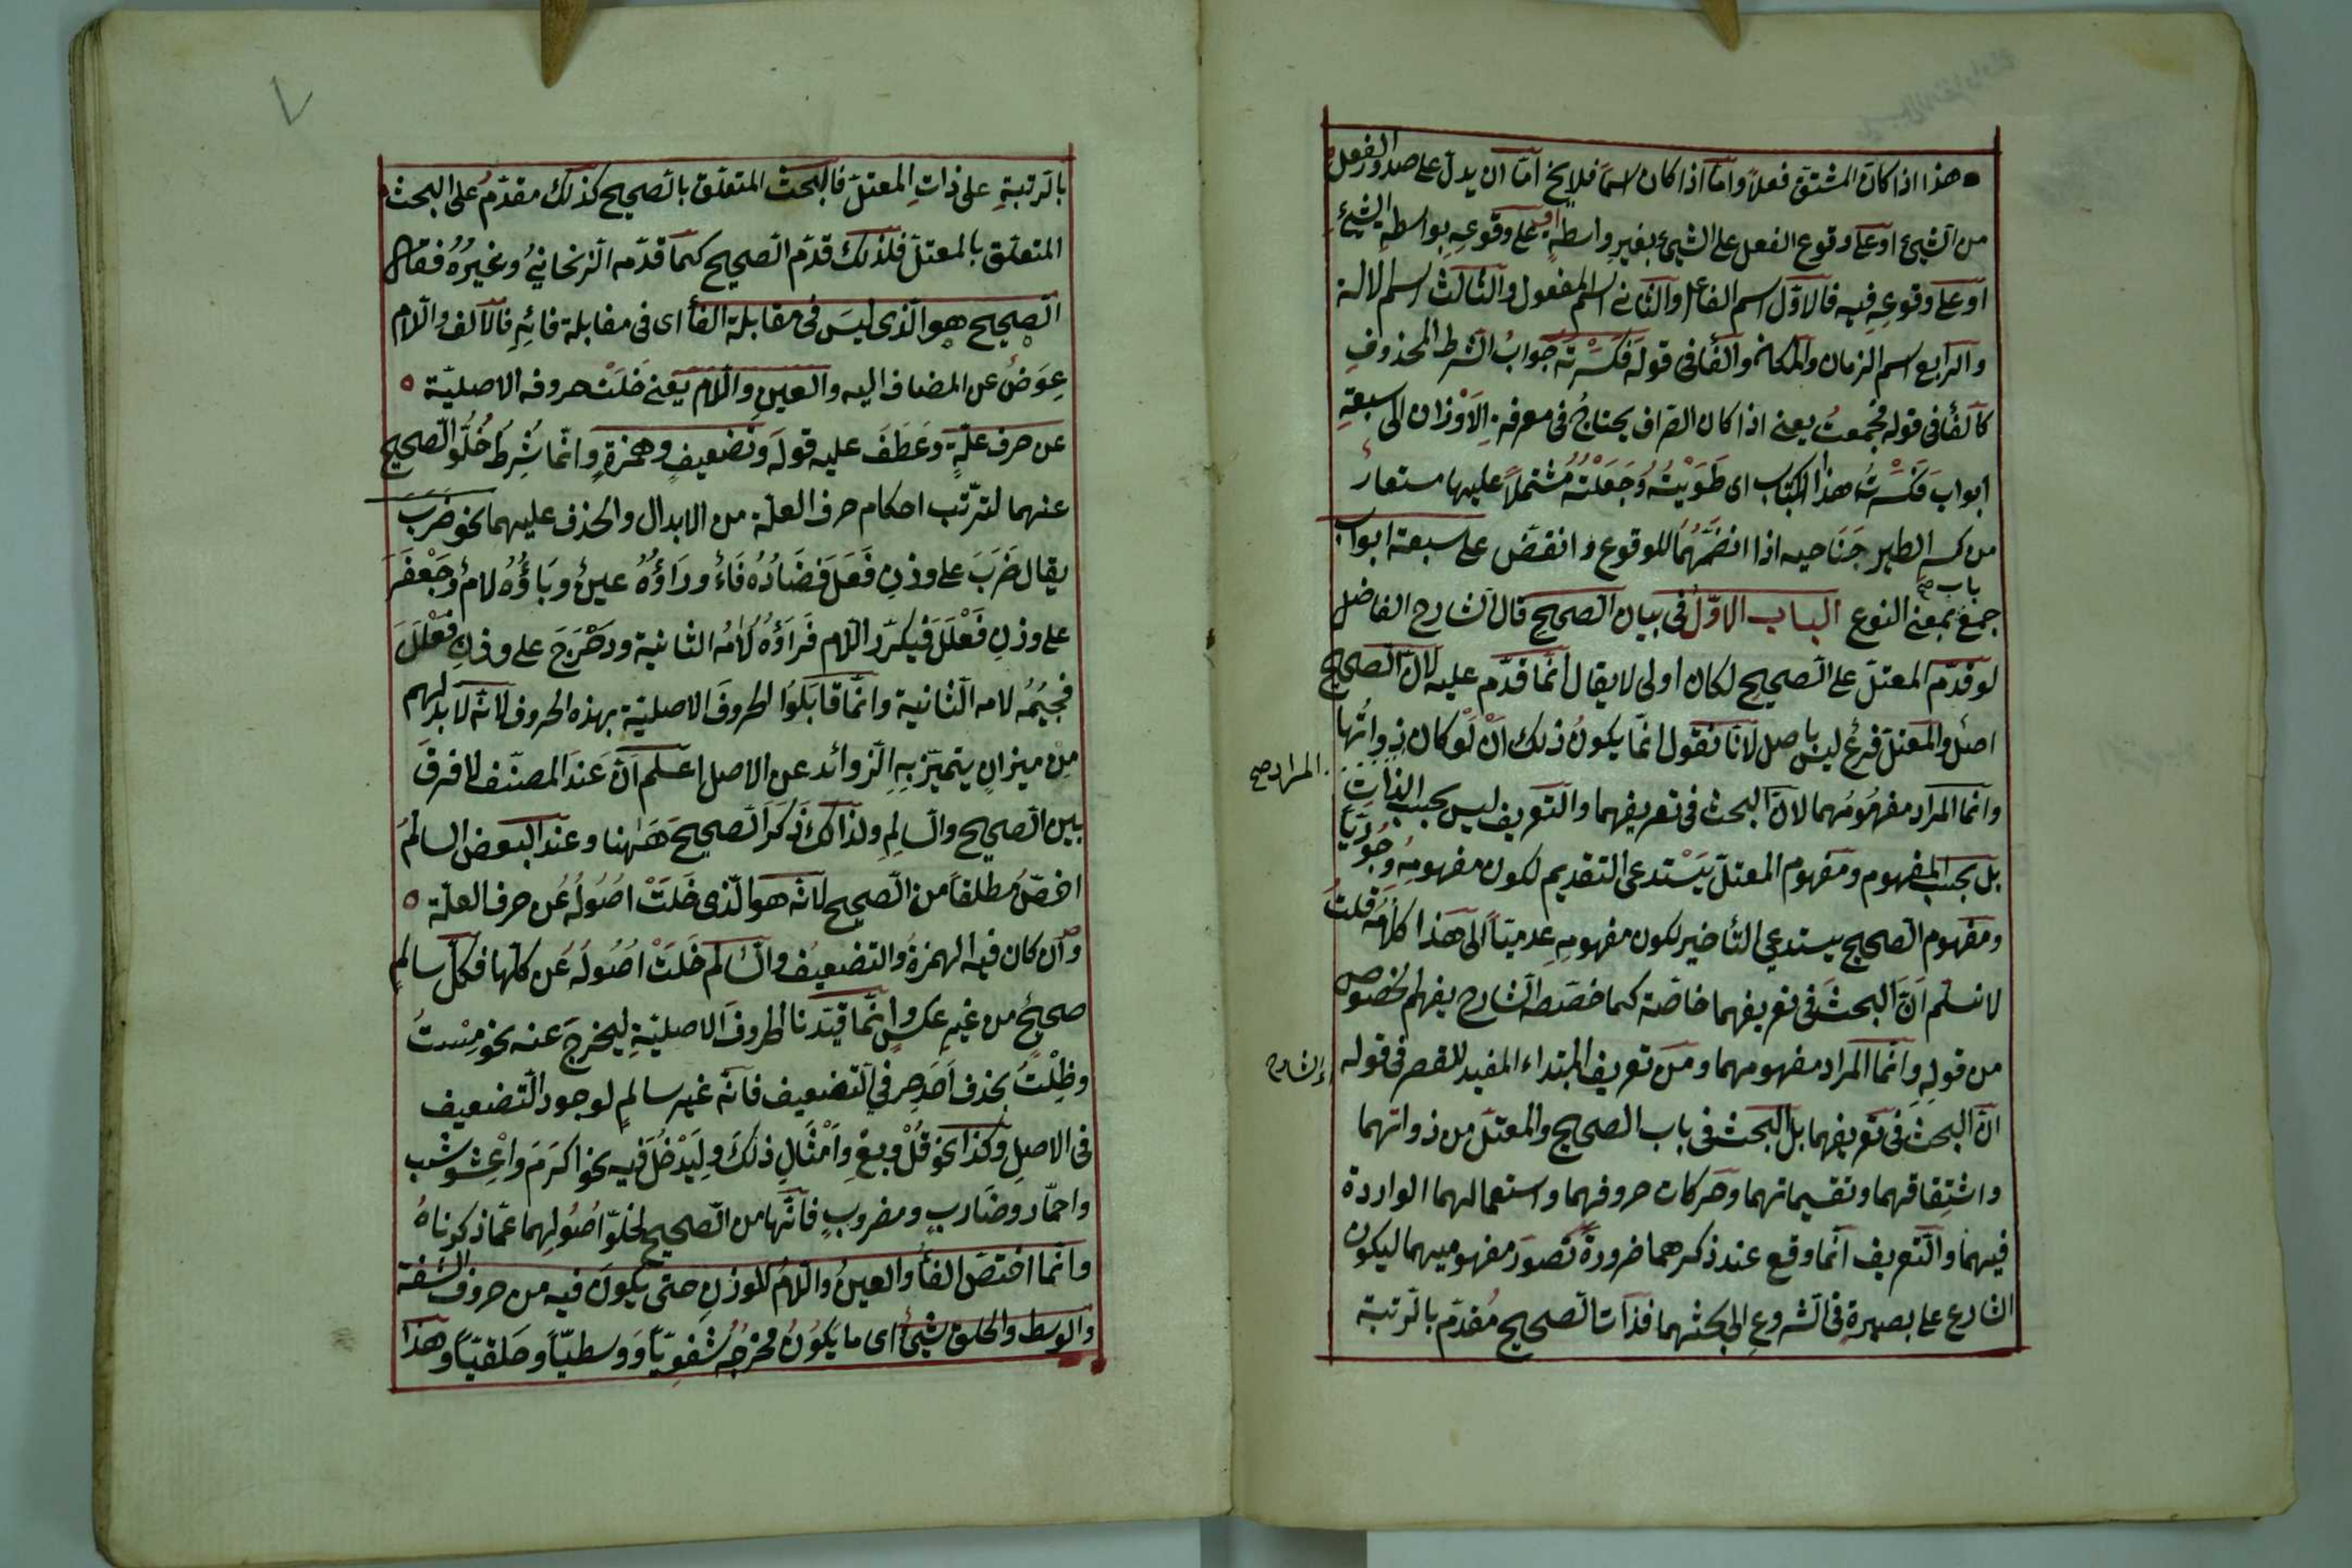 هذا اذا كان المشتق فعلا واما اذا كان اسما فلا يخ اما ان يدل على صدور الفعل
من الشيئ او على وقوع الفعل على الشيئ بغير واسطة او على وقوعه بواسطة الشيئ
او على وقوعه فيه فالاول اسم الفاعل والثاني اسم المفعول والثالث اسم الالة
والرابع اسم الزمان والمكان والفأ فى قوله فكسرته جواب الشرط المحذوف
كالفأ فى قوله فجمعت يعنى اذا كان الصراف يحتاج فى معرفة الاوزان الى سبعة
ابواب فكسرت هذا الكتاب اى طويته وجعلته مشتملا عليها مستعار
من كسر الطير جناحيه اذا انضمهما للوقوع وانقض على سبعة ابواب
باب صح
جمع بمعنى النوع الباب الاول فى بيان الصحيح قال الشارح الفاضل
لو قدم المعتل على الصحيح لكان اولى لا يقال انما قدم عليه لان الصحيح
اصل والمعتل فرع ليس باصل لانا نقول انما يكون ذلك ان لو كان ذواتها
المراد صح
وانما المراد مفهومهما لان البحث فى تعريفهما والتعريف ليس بحسب الذات
بل بحسب المفهوم ومفهوم المعتل يستدعى التقديم لكون مفهومه وجوديا
ومفهوم الصحيح يستدعى التأخير لكون مفهومه عدميا الى هذا كلامه قلت
لا نسلم ان البحث فى تعريفهما خاصة كما خصصه الشارح يفهم الخصوص
من قوله وانما المراد مفهومهما ومن تعريف المبتداء المفيد للقصر فى قوله
اى الشارح
ان البحث فى تعريفهما بل البحث فى باب الصحيح والمعتل من ذواتهما
واشتقاقهما وتقسيماتهما وحركات حروفهما واستعمالهما الواردة
فيهما والتعريف انما وقع عند ذكرهما ضرورة تصور مفهوميهما ليكون
الشارع على بصيرة فى الشروع الى بحثهما فذات الصحيح مقدم بالرتبة
٧
بالرتبة على ذات المعتل فالبحث المتعلق بالصحيح كذلك مقدم على البحث
المتعلق بالمعتل فلذلك قدم الصحيح كما قدمه الزنجانى وغيره فقال
الصحيح هو الذى ليس فى مقابلة الفأ اى فى مقابلة فائه فالالف واللام
عوض عن المضاف اليه والعين واللام يعنى خلت حروفه الاصلية
عن حرف علة وعطف عليه قوله وتضعيف وهمزة وانما شرط خلو الصحيح
عنهما لترتب احكام حرف العلة من الابدال والحذف عليهما نحو ضرب
يقال ضرب على وزن فعل فضاده فاء وراؤه عين وباؤه لام وجعفر
على وزن فعلل فيكرر اللام فراؤه لامه الثانية ودحرج على وزن فعلل
فجيمه لامه الثانية وانما قابلوا الحروف الاصلية بهذه الحروف لانه لا بد لهم
من ميزان يتميز به الزوائد عن الاصل اعلم ان عند المصنف لا فرق
بين الصحيح والسالم ولذلك ذكر الصحيح ههنا وعند البعض السالم
اخص مطلقا من الصحيح لانه هو الذى خلت اصوله عن حرف العلة
وان كان فيه الهمزة والتضعيف والسالم خلت اصوله عن كلها فكل سالم
صحيح من غير عكس وانما قيدنا الحروف الاصلية ليخرج عنه نحو مست
وظلت بحذف احد حرفى التضعيف فانه غير سالم لوجود التضعيف
فى الاصل وكذا نحو قل وبع وامثال ذلك وليدخل فيه نحو اكرم واعشوشب
واحمار وضارب ومضروب فانها من الصحيح لخلو اصولهما عما ذكرناه
وانما اختص الفأ والعين واللام للوزن حتى يكون فيه من حروف الشفة
والوسط والحلق شيئ اى ما يكون مخرجه شفويا ووسطيا وحلقيا وهذا